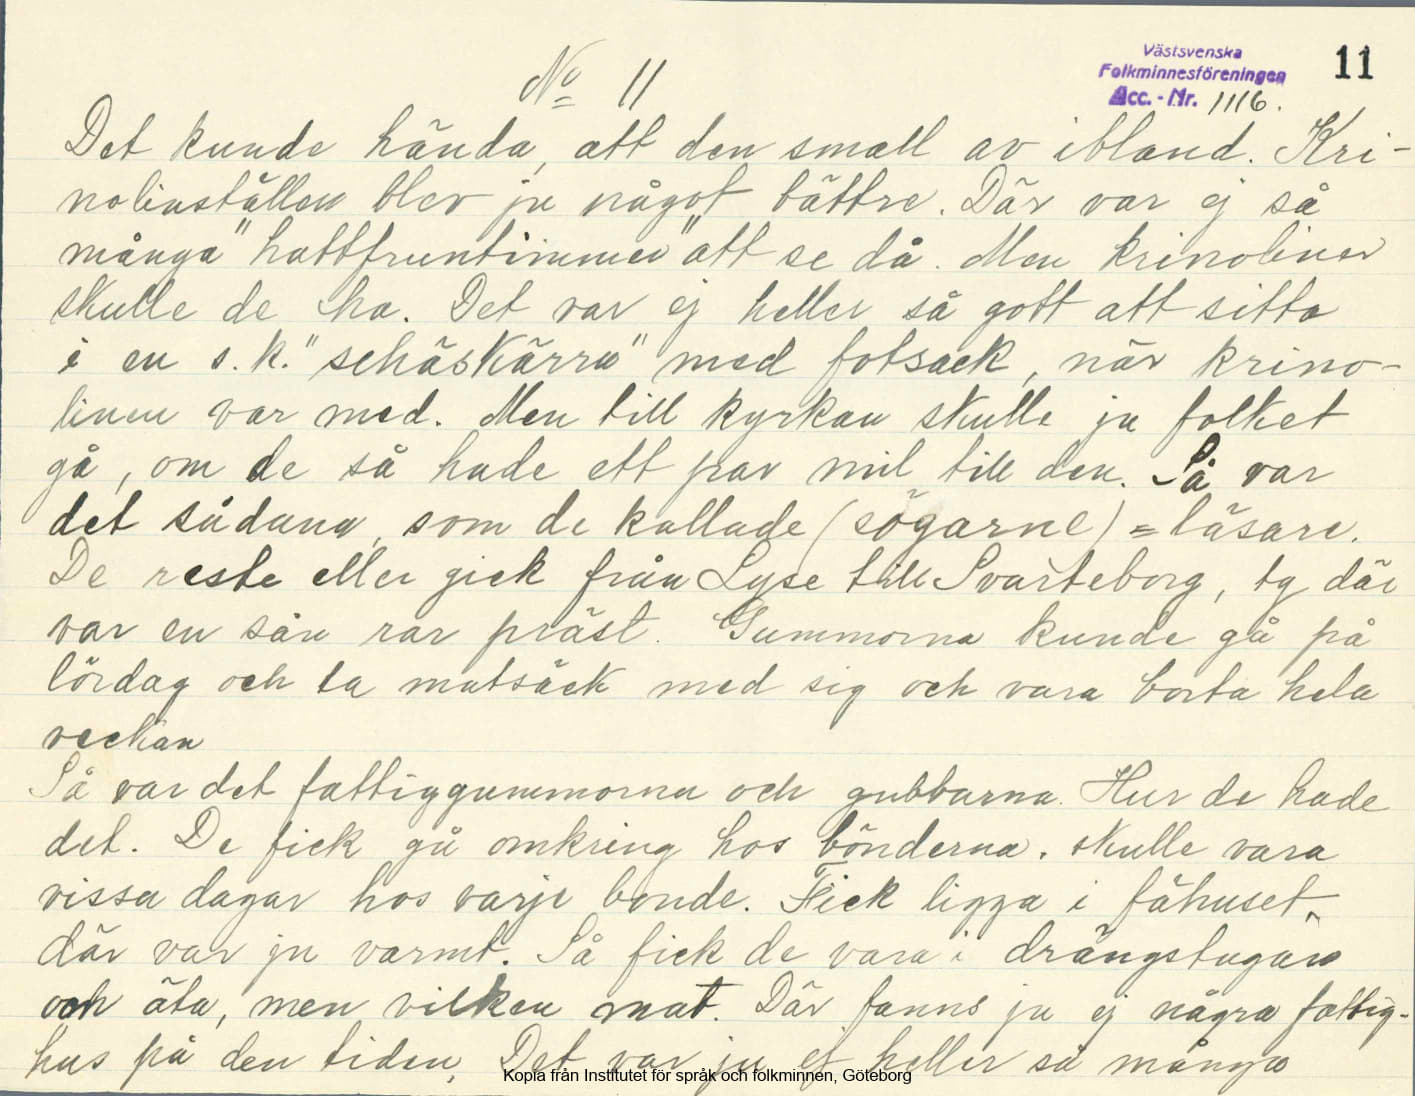 Västsvenska
Folkminnesföreningen
Acc.-Nr. 1116.
11
No 11
Det kunde hända, att den small av ibland. Kri-
nolinställen blev ju något bättre. Där var ej så
många "hattfruntimmer" att se då. Men krinoliner
skulle de ha. Det var ej heller så gott att sitta
i en s.k. "schäskärra" med fotsack, när krino-
linen var med. Men till kyrkan skulle ju folket
gå, om de så hade ett par mil till den. Så var
det sådana, som de kallade (sögarne) = läsare.
De reste eller gick från Lyse till Svarteborg, ty där
var en sån rar präst. Gummorna kunde gå på
lördag och ta matsäck med sig och vara borta hela
veckan
Så var det fattiggummorna och gubbarna. Hur de hade
det. De fick gå omkring hos bönderna. skulle vara
vissa dagar hos varje bonde. Fick ligga i fähuset,
där var ju varmt. Så fick de vara i drängstugan
och äta, men vilken mat. Där fanns ju ej några fattig-
hus på den tiden. Det var ju ej heller så många
Kopia från Institutet för språk och folkminnen, Göteborg